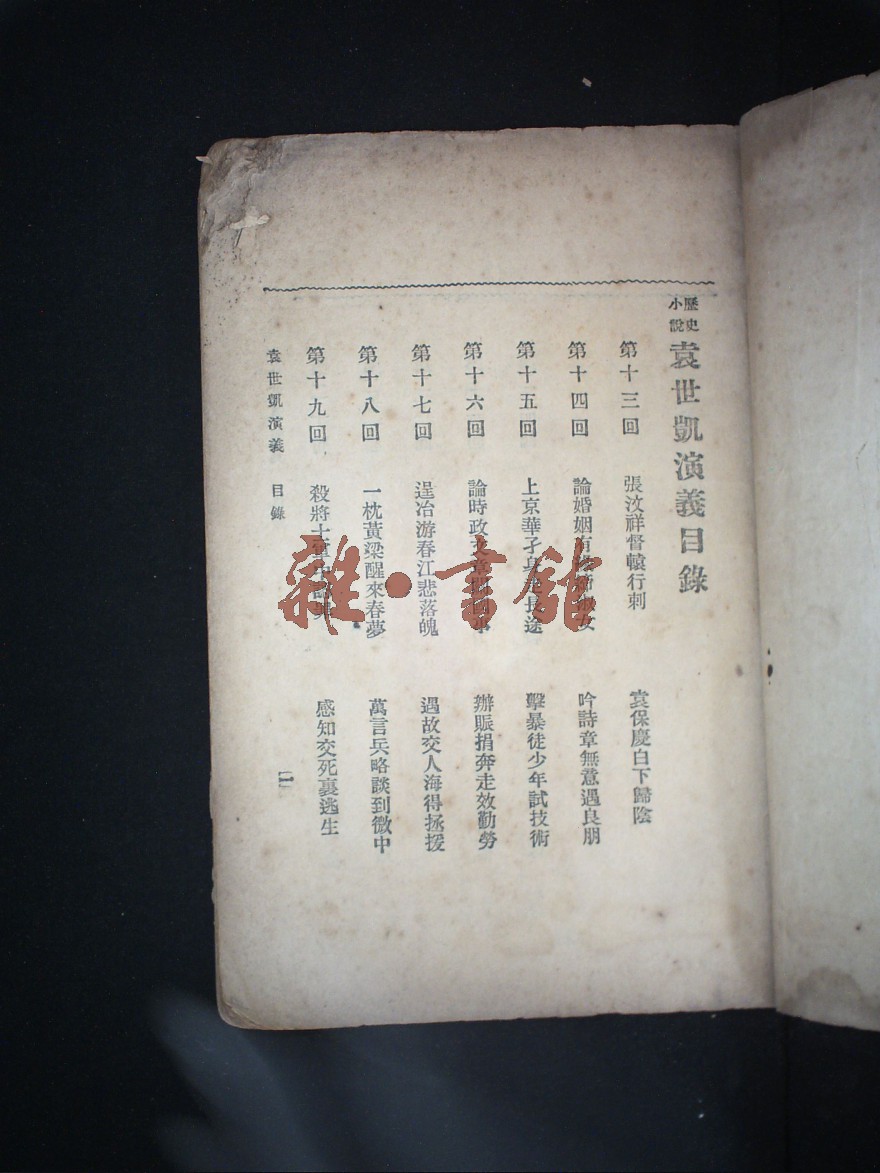 歷史小說 袁世凱演義目錄
第十三回 張汶祥督轅行刺 袁保慶白下歸陰
第十四回 論婚姻有 女 吟詩章無意遇良朋
第十五回 上京華孑身走長途 擊暴徒少年試技術
第十六回 論時政文章 辦賑捐奔走效勤勞
第十七回 逞冶游春江悲落魄 遇故交人海得拯援
第十八回 一枕黃梁醒來春夢 萬言兵略談到微中
第十九回 殺將士 感知交死裏逃生
袁世凱演義 目錄 一
雜·書館